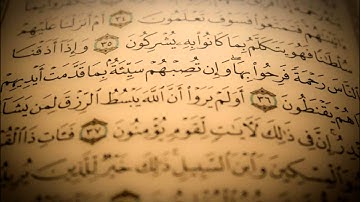 فَتَمَتَّعُوا۟ فَسَوْفَ تَعْلَمُونَ ٣٤ أَمْ أَنزَلْنَا عَلَيْهِمْ
سُلْطَٰنًا فَهُوَ يَتَكَلَّمُ بِمَا كَانُوا۟ بِهِۦ يُشْرِكُونَ ٣٥ وَإِذَآ أَذَقْنَا
ٱلنَّاسَ رَحْمَةً فَرِحُوا۟ بِهَا ۖ وَإِن تُصِبْهُمْ سَيِّئَةٌۢ بِمَا قَدَّمَتْ أَيْدِيهِمْ
هُمْ يَقْنَطُونَ ٣٦ أَوَلَمْ يَرَوْا۟ أَنَّ ٱللَّهَ يَبْسُطُ ٱلرِّزْقَ لِمَن يَشَآءُ
إِنَّ فِى ذَٰلِكَ لَءَايَٰتٍ لِّقَوْمٍ يُؤْمِنُونَ ٣٧ فَـَٔاتِ ذَا
وَٱلْمِسْكِينَ وَٱبْنَ ٱلسَّبِيلِ ۚ ذَٰلِكَ خَيْرٌ لِّلَّذِينَ